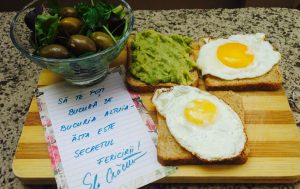 SĂ TE POȚI
BUCURA DE
BUCURIA ALTUIA -
ĂSTA ESTE
SECRETUL
FERICIRII!